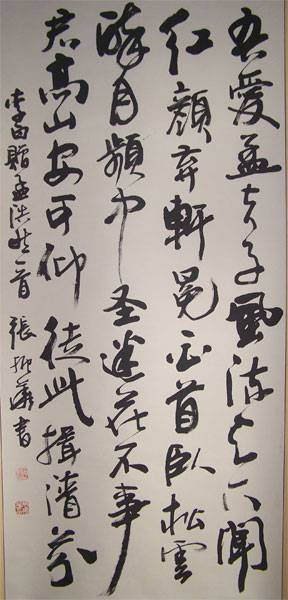 吾愛孟夫子風流天下聞
紅顏弃軒冕白首臥松雲
醉月頻中圣迷花不事
君高山安可仰徒此揖清芬
李白贈孟浩然一首 張 書